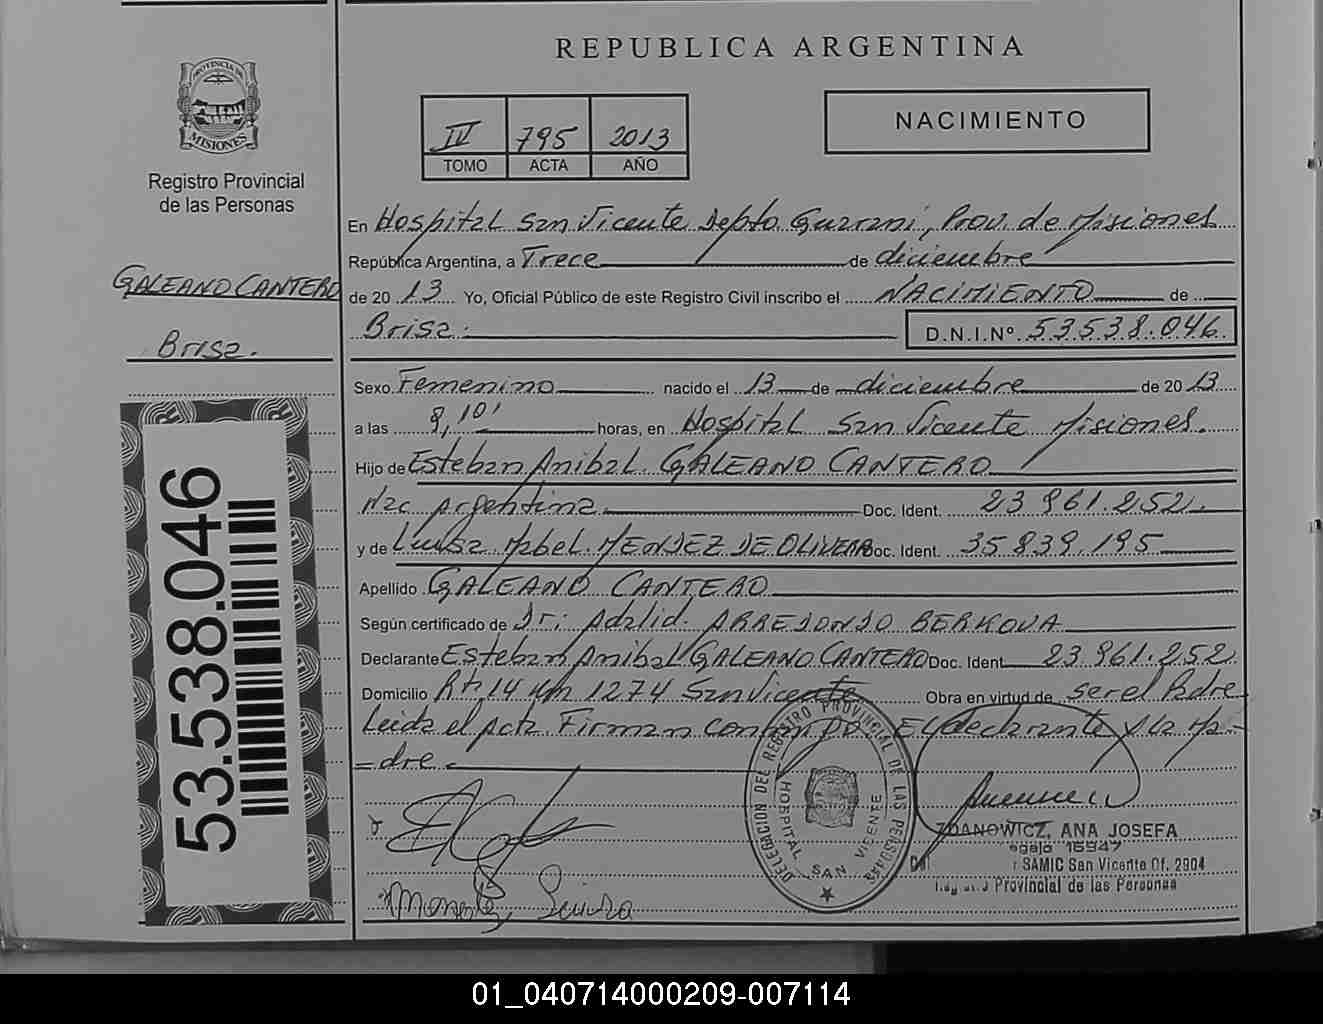 REPUBLICA ARGENTINA
PROVINCIA DE
MISIONES
Registro Provincial
de las Personas
IV 795 2013
TOMO ACTA AÑO
NACIMIENTO
GALEANO CANTERO
Brisa.
53.538.046
En Hospital San Vicente Depto. Guarani, Prov. de Misiones
República Argentina, a Trece de diciembre
de 20 13 Yo, Oficial Público de este Registro Civil inscribo el NACIMIENTO de
Brisa. D.N.I.Nº 53.538.046
Sexo Femenino nacido el 13 de diciembre de 20 13
a las 8,10' horas, en Hospital San Vicente Misiones.
Hijo de Esteban Anibal GALEANO CANTERO
Nac argentina Doc. Ident. 23 961.252
y de Luisa Mabel MENDEZ DE OLIVERA Doc. Ident. 35 839.195
Apellido GALEANO CANTERO
Según certificado de Dr: Adalid. ARREDONDO BERKOVA
Declarante Esteban Anibal GALEANO CANTERO Doc. Ident 23.961.252
Domicilio Rta 14 Km 1274 San Vicente Obra en virtud de ser el Padre
Leida el acta Firman conmigo El declarante y la Ma-
dre.
DELEGACION DEL REGISTRO PROVINCIAL DE LAS PERSONAS
HOSPITAL SAN VICENTE
ZDANOWICZ, ANA JOSEFA
egajo 15947
SAMIC San Vicente Of. 2904
Provincial de las Personas
01_040714000209-007114